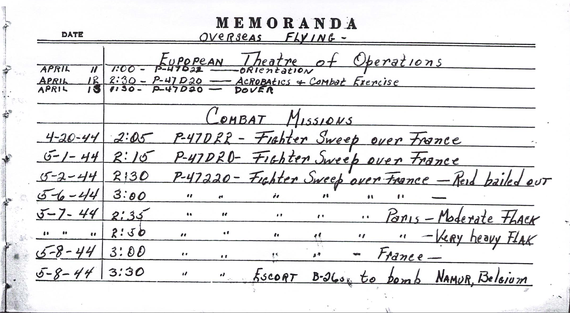 MEMORANDA
OVERSEAS FLYING -
DATE
EUROPEAN Theatre of Operations
APRIL 11 1:00 - P-47D22 — ORIENTATION
APRIL 12 2:30 - P-47D20 — ACROBATICS & COMBAT EXERCISE
APRIL 13 1:30 - P-47D20 — DOVER
COMBAT MISSIONS
4-20-44 2:05 P-47D22 - Fighter Sweep over France
5-1-44 2:15 P-47D20 - Fighter Sweep over France
5-2-44 2:30 P-47220 - Fighter Sweep over France — Reid bailed out
5-6-44 3:00 " " " " " " —
5-7-44 2:35 " " " " " Paris - Moderate Flack
" " " 2:50 " " " " " " — Very heavy FLAK
5-8-44 3:00 " " " " - France —
5-8-44 3:30 " " ESCORT B-26s, to bomb NAMUR, Belgium